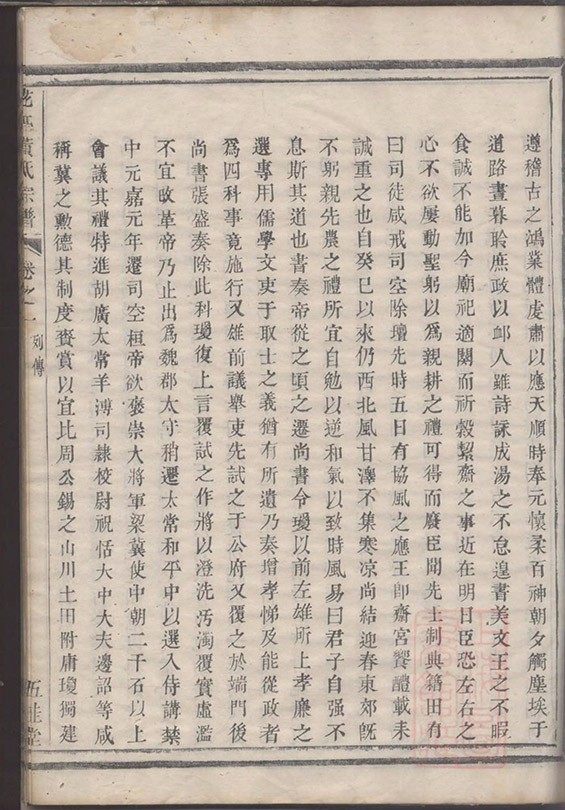 遵稽古之鴻業體虔肅以應天順時奉元懷柔百神朝夕觸塵埃于
道路晝暮聆庶政以卹人雖詩詠成湯之不怠遑書美文王之不暇
食誠不能加今廟祀適闋而祈穀絜齋之事近在明日臣恐左右之
心不欲屢動聖躬以爲親耕之禮可得而廢臣聞先王制典籍田有
日司徒咸戒司空除壇先時五日有協風之應王卽齋宮饗醴載耒
誠重之也自癸巳以來仍西北風甘澤不集寒凉尚結迎春東郊旣
不躬親先農之禮所宜自勉以逆和氣以致時風易曰君子自强不
息斯其道也書奏帝從之頃之遷尚書令瓊以前左雄所上孝廉之
選專用儒學文吏于取士之義猶有所遺乃奏增孝悌及能從政者
爲四科事竟施行又雄前議舉吏先試之于公府又覆之於端門後
尚書張盛奏除此科瓊復上言覆試之作將以澄洗汚濁覆實虛濫
不宜改革帝乃止出爲魏郡太守稍遷太常和平中以選入侍講禁
中元嘉元年遷司空桓帝欲褒崇大將軍梁冀使中朝二千石以上
會議其禮特進胡廣太常羊溥司隸校尉祝恬大中大夫邊韶等咸
稱冀之勲德其制度賚賞以宜比周公錫之山川土田附庸瓊獨建
黃氏宗譜 卷之一 列傳 五桂堂